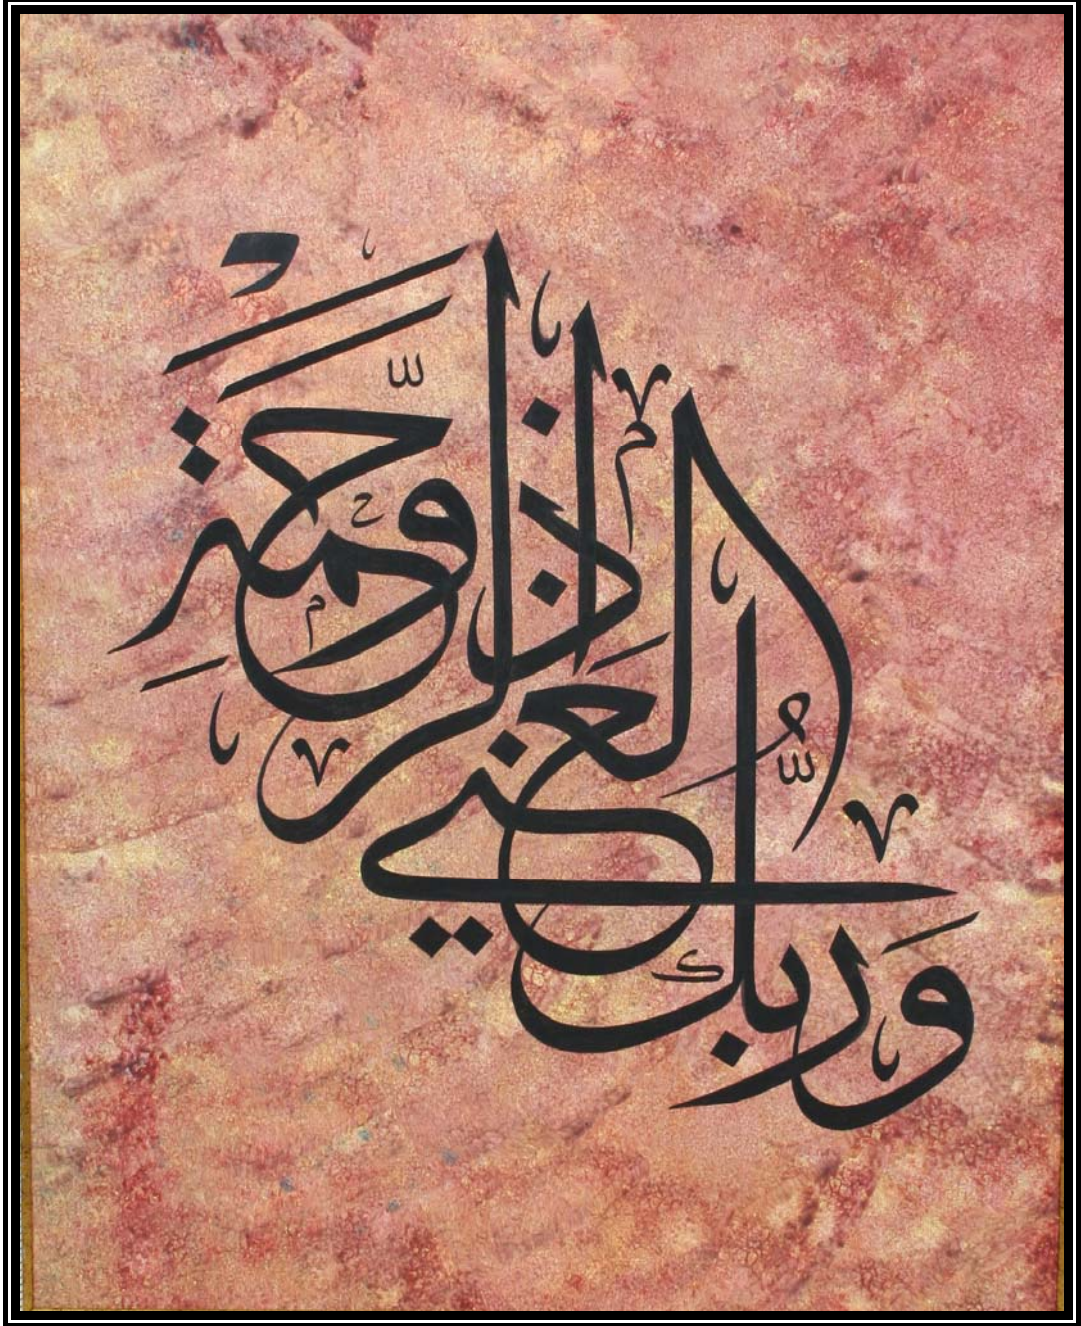 وَرَبُّكَ الْغَنِيُّ ذُو الرَّحْمَةِ